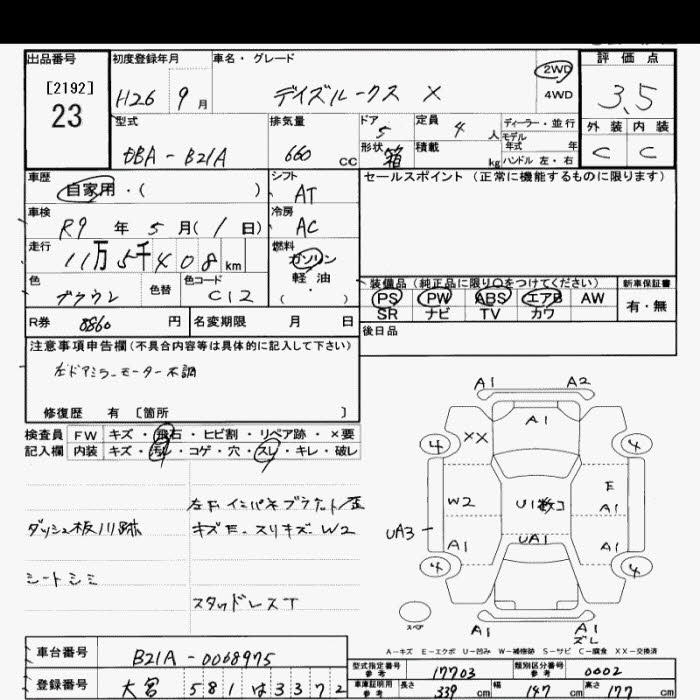 出品番号
[2192]
23
初度登録年月
H26 9月
車名・グレード
デイズルークス X
2WD
4WD
評価点
3.5
外装 内装
C C
型式
DBA-B21A
排気量
660 cc
ドア
5
形状
箱
定員
4人
積載
kg
ディーラー・並行
モデル年式 年
ハンドル 左・右
車歴
自家用・( )
シフト
AT
セールスポイント(正常に機能するものに限ります)
車検
R9年 5月(1日)
冷房
AC
走行
11万5千408km
燃料
ガソリン
軽油
( ・ )
色
ブラウン
色替
色コード
C12
装備品(純正品に限り○をつけてください)
PS PW ABS エアB AW
SR ナビ TV カワ
新車保証書
有・無
R券 8860円
名変期限 月 日
後日品
注意事項申告欄(不具合内容等は具体的に記入して下さい)
左ドアミラーモーター不調
修復歴 有〔箇所 〕
検査員 FW キズ・飛石・ヒビ割・リペア跡・×要
記入欄 内装 キズ・汚レ・コゲ・穴・スレ・キレ・破レ
左F インパネブラケット歪
ダッシュ板ハリ跡
キズE. スリキズ. W2
シートシミ
スタッドレスT
A1 A2
A1
XX
4 4
W2
U1数コ
E
A1
UA3
A1
UA1
A1
4 4
スペア
A1
A1
ズレ
A-キズ E-エクボ U-凹み W-補修跡 S-サビ C-腐食 XX-交換済
車台番号
B21A-0068975
登録番号
大宮 581 は 3372
型式指定番号 参考
17703
類別区分番号 参考
0002
車庫証明用 参考
長さ 339 cm
幅 147 cm
高さ 177 cm